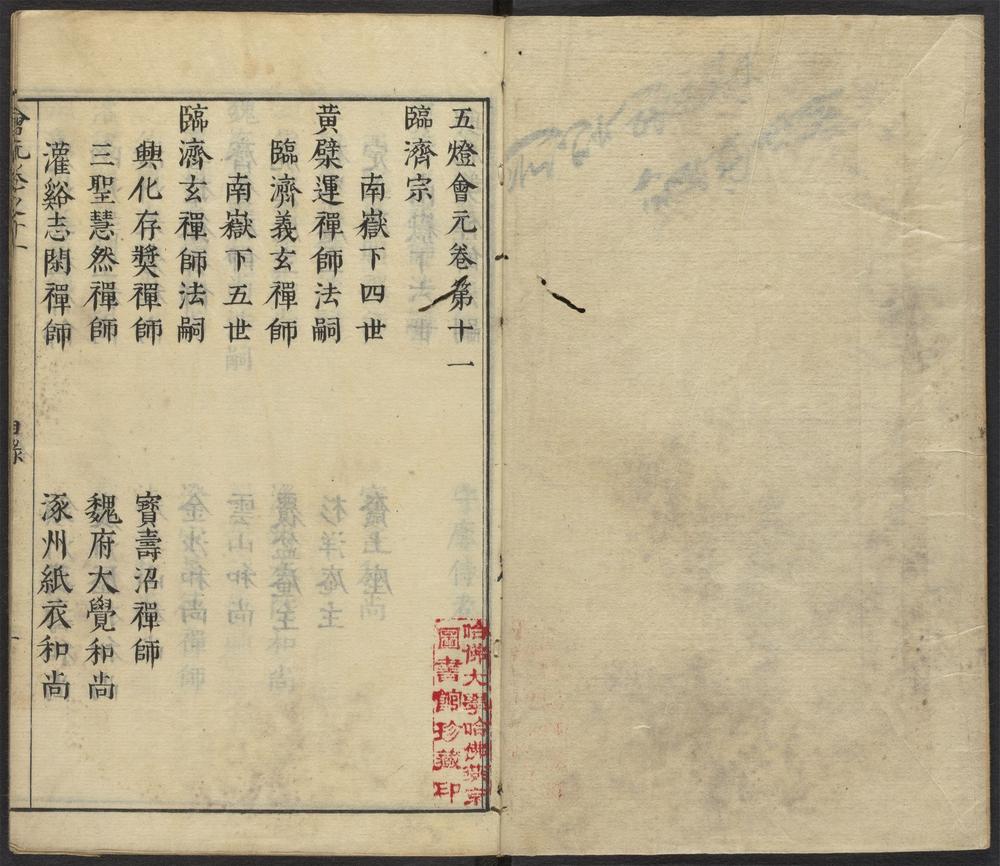 五燈會元卷第十一
臨濟宗
南嶽下四世
黃檗運禪師法嗣
臨濟義玄禪師
南嶽下五世
臨濟玄禪師法嗣
興化存獎禪師
寶壽沼禪師
三聖慧然禪師
魏府大覺和尚
灌谿志閑禪師
涿州紙衣和尚
目錄
哈佛大學哈佛燕京
圖書館珍藏印